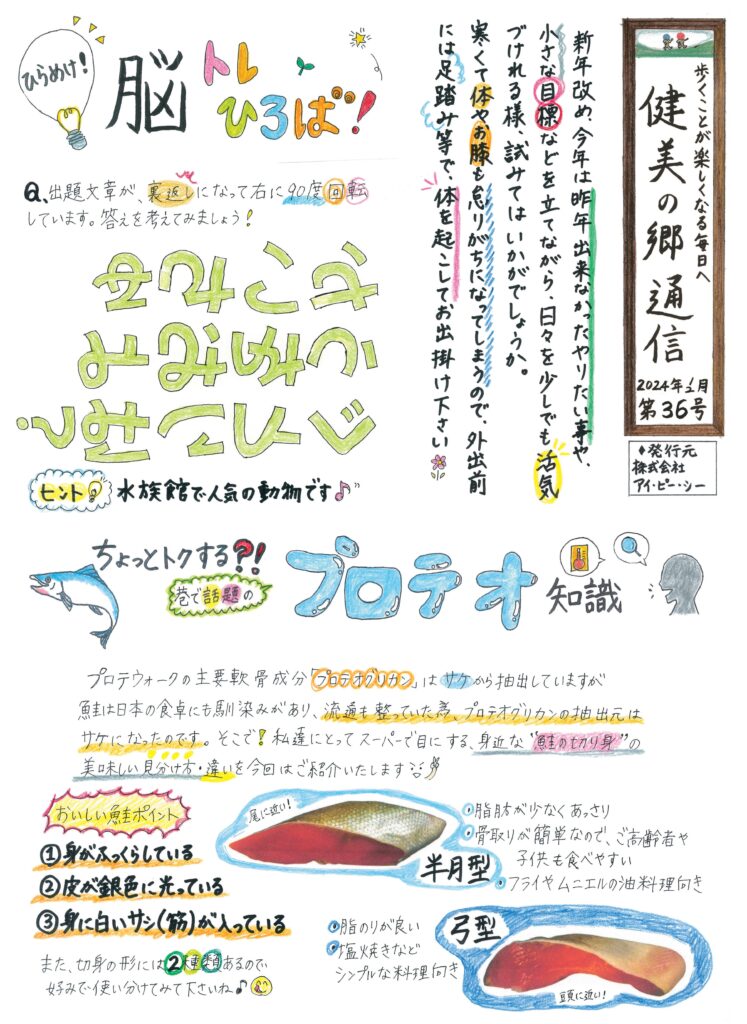 歩くことが楽しくなる毎日へ
健美の郷通信
2024年1月
第36号
♦発行元
株式会社
アイ・ピー・シー
新年改め、今年は昨年出来なかったやりたい事や、
小さな目標などを立てながら、日々を少しでも活気
づけれる様、試みてはいかがでしょうか。
寒くて体やお膝も怠りがちになってしまうので、外出前
には足踏み等で、体を起こしてお出掛け下さい
ひらめけ!
脳トレ
ひろば!
Q、出題文章が、裏返しになって右に90度回転
しています。答えを考えてみましょう!
ヒント 水族館で人気の動物です♪
ちょっとトクする?!
巷で話題の
プロテオ知識
プロテウォークの主要軟骨成分「プロテオグリカン」はサケから抽出していますが
鮭は日本の食卓にも馴染みがあり、流通も整っていた為、プロテオグリカンの抽出元は
サケになったのです。そこで!私達にとってスーパーで目にする、身近な"鮭の切り身"の
美味しい見分け方・違いを今回はご紹介いたします
おいしい鮭ポイント
①身がふっくらしている
②皮が銀色に光っている
③身に白いサシ(筋)が入っている
また、切身の形には2種類あるので
好みで使い分けてみて下さいね♪
尾に近い!
半月型
・脂肪が少なくあっさり
・骨取りが簡単なので、ご高齢者や
子供も食べやすい
・フライやムニエルの油料理向き
・脂のりが良い
・塩焼きなど
シンプルな料理向き
弓型
頭に近い!